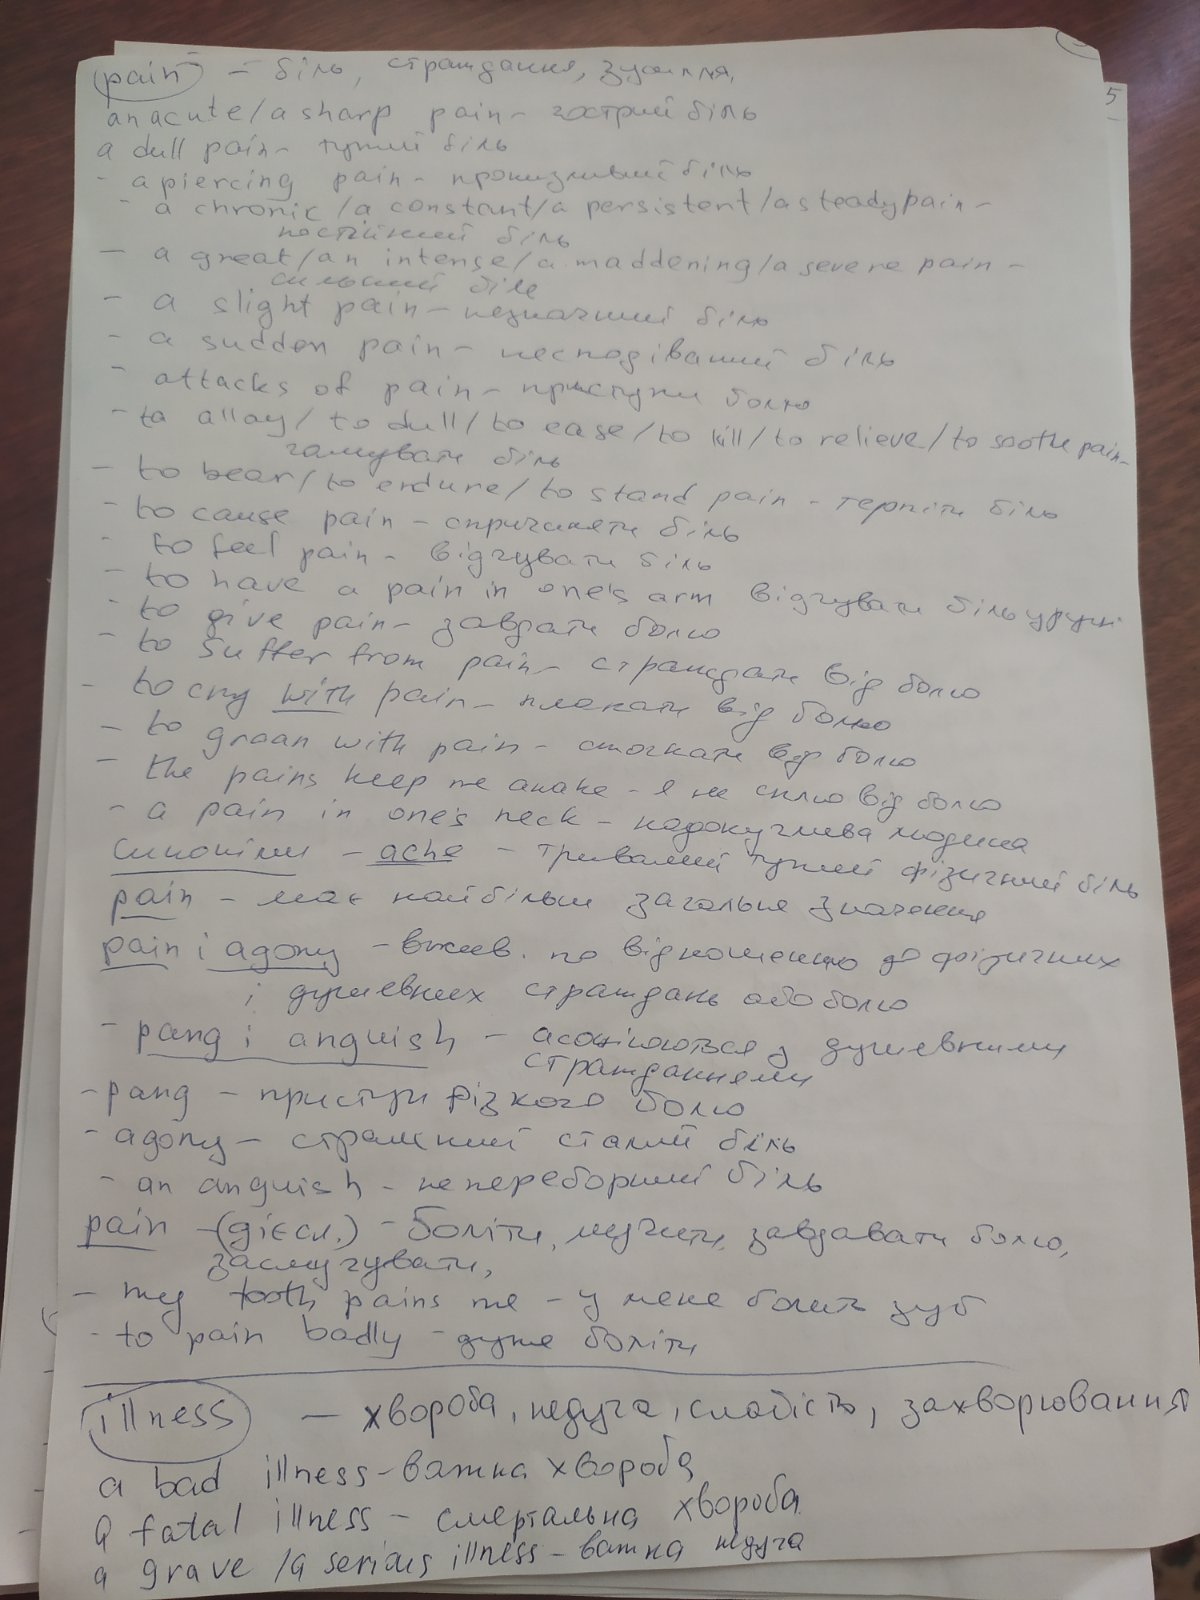 pain - біль, страждання, зусилля,
5
an acute/a sharp pain - гострий біль
a dull pain - тупий біль
- a piercing pain - пронизливий біль
- a chronic /a constant/a persistent/a steady pain -
постійний біль
- a great/an intense/a maddening/a severe pain -
сильний біль
- a slight pain - незначний біль
- a sudden pain - несподіваний біль
- attacks of pain - приступи болю
- to allay/to dull/to ease/to kill/to relieve/to soothe pain -
тамувати біль
- to bear/to endure/to stand pain - терпіти біль
- to cause pain - спричиняти біль
- to feel pain - відчувати біль
- to have a pain in one's arm відчувати біль у руці
- to give pain - завдати болю
- to suffer from pain - страждати від болю
- to cry with pain - плакати від болю
- to groan with pain - стогнати від болю
- the pains keep me awake - я не сплю від болю
- a pain in one's neck - надокучлива людина
синоніми - ache - тривалий тупий фізичний біль
pain - має найбільш загальне значення
pain і agony - вжив. по відношенню до фізичних
і душевних страждань або болю
- pang і anguish - асоціюються з душевними
стражданнями
- pang - приступ різкого болю
- agony - страшний сталий біль
- an anguish - непереборний біль
pain - (дієсл.) - боліти, мучити, завдавати болю,
засмучувати,
- my tooth pains me - у мене болить зуб
- to pain badly - дуже боліти
illness - хвороба, недуга, слабість, захворювання
a bad illness - важка хвороба
a fatal illness - смертальна хвороба
a grave /a serious illness - важка недуга